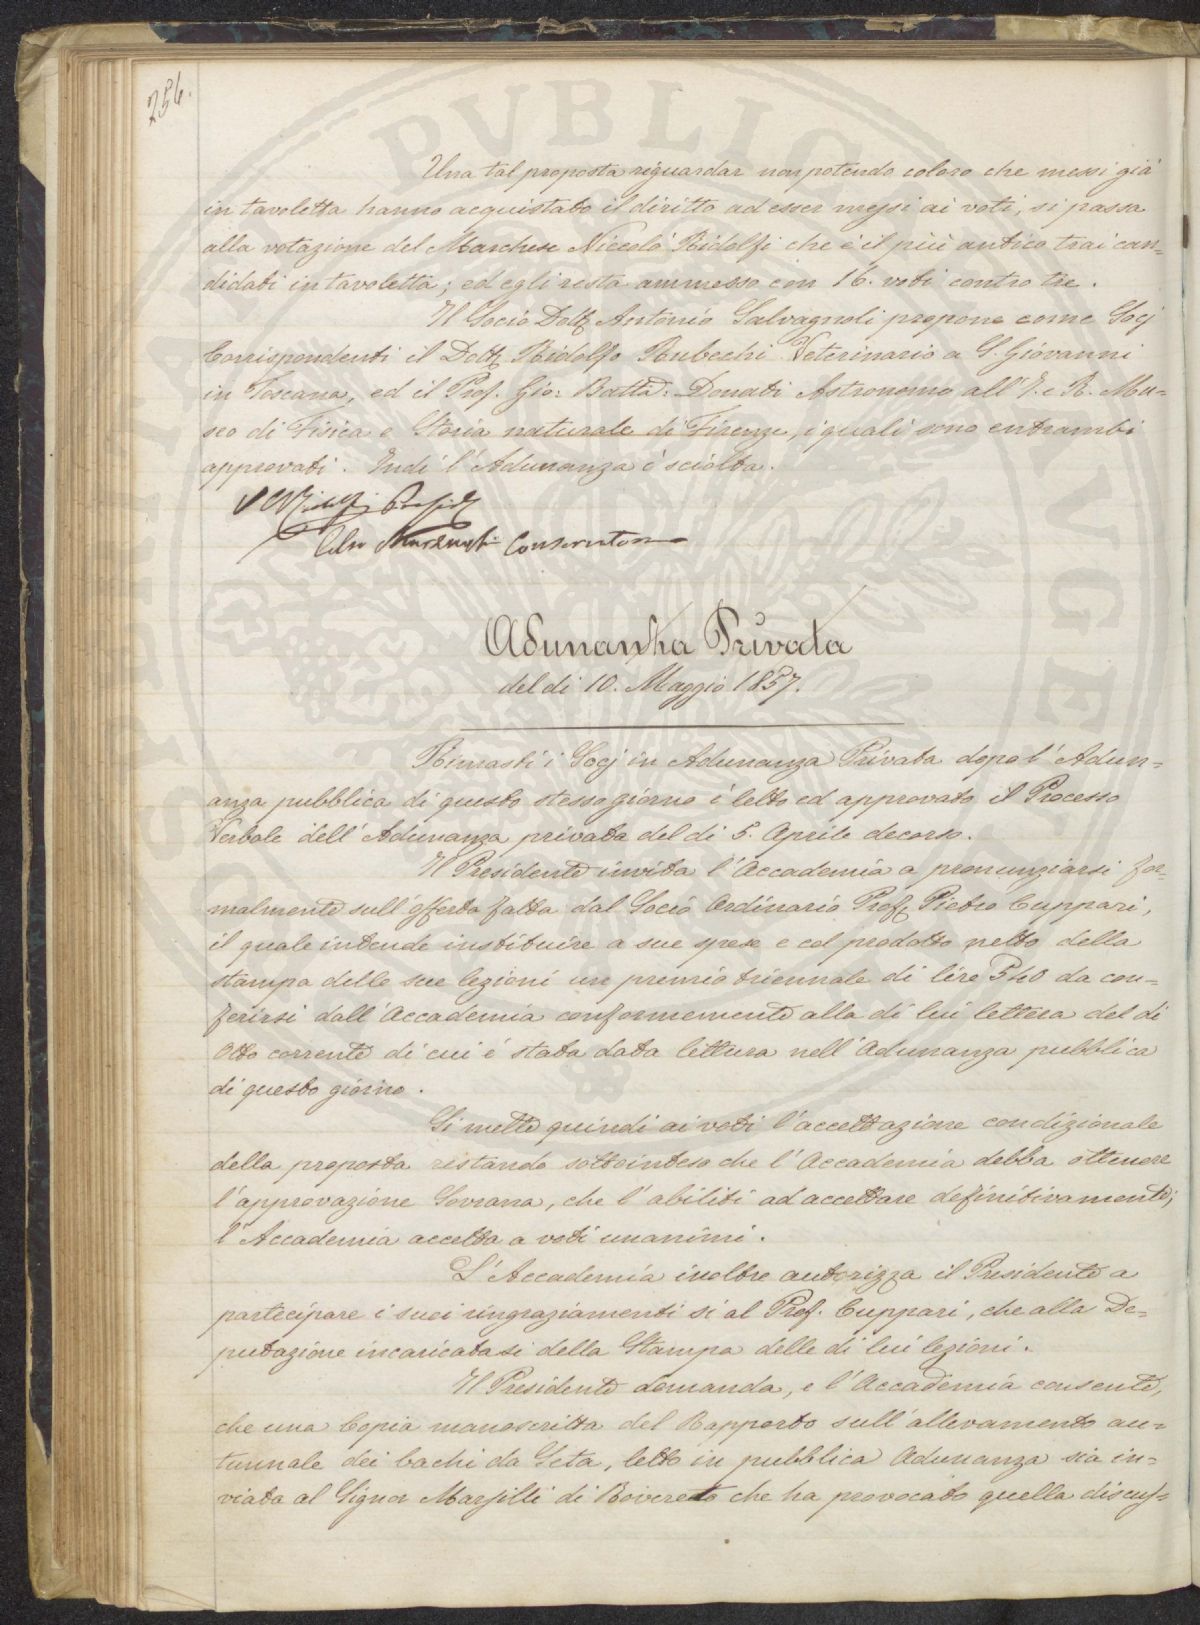 256.
Una tal proposta riguardar non potendo coloro che messi già
in tavoletta hanno acquistato il diritto ad esser messi ai voti, si passa
alla votazione del Marchese Niccolò Ridolfi che è il più antico trai can=
didati in tavoletta; ed egli resta ammesso con 16. voti contro tre.
Il Socio Dott. Antonio Salvagnoli propone come Socj
Corrispondenti il Dott. Ridolfo Rubechi Veterinario a S. Giovanni
in Toscana, ed il Prof. Gio: Batta: Donati Astronomo all'I. e R. Mu=
seo di Fisica e Storia naturale di Firenze, i quali sono entrambi
approvati. Indi l'Adunanza è sciolta.
Conservatore
Adunanza Privata
del dì 10. Maggio 1857.
Rimasti i Socj in Adunanza Privata dopo l'Adun=
anza pubblica di questo stesso giorno è letto ed approvato il Processo
Verbale dell'Adunanza privata del dì 5. Aprile decorso.
Il Presidente invita l'Accademia a pronunziarsi for=
malmente sull'offerta fatta dal Socio Ordinario Prof. Pietro Cuppari,
il quale intende instituire a sue spese e col prodotto netto della
stampa delle sue lezioni un premio triennale di lire 540 da con=
ferirsi dall'Accademia conformemente alla di lui lettera del dì
Otto corrente di cui è stata data lettura nell'Adunanza pubblica
di questo giorno.
Si mette quindi ai voti l'accettazione condizionale
della proposta restando sottointeso che l'Accademia debba ottenere
l'approvazione Sovrana, che l'abiliti ad accettare definitivamente;
l'Accademia accetta a voti unanimi.
L'Accademia inoltre autorizza il Presidente a
partecipare i suoi ringraziamenti sì al Prof. Cuppari, che alla De=
putazione incaricatasi della Stampa delle di lui lezioni.
Il Presidente domanda, e l'Accademia consente,
che una Copia manoscritta del Rapporto sull'allevamento au=
tunnale dei bachi da Seta, letto in pubblica Adunanza sia in=
viata al Signor Marsilli di Rovereto che ha provocato quella discus=